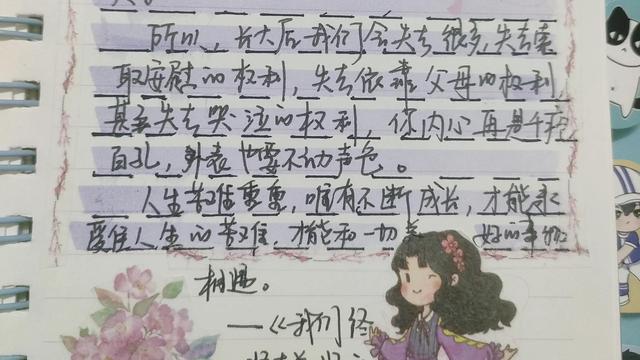 所以，长大后我们会失去很多，失去索
取安慰的权利，失去依靠父母的权利，
甚至失去哭泣的权利，你内心再是千疮
百孔，外表也要不动声色。
人生苦难重重，唯有不断成长，才能承
受住人生的苦难，才能和一切美好的事物
相遇。
——《我们终